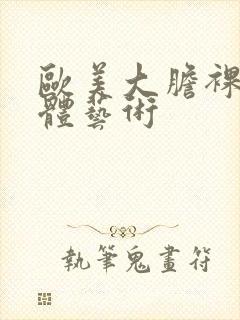 歐美大膽裸
體藝術
執筆鬼畫符